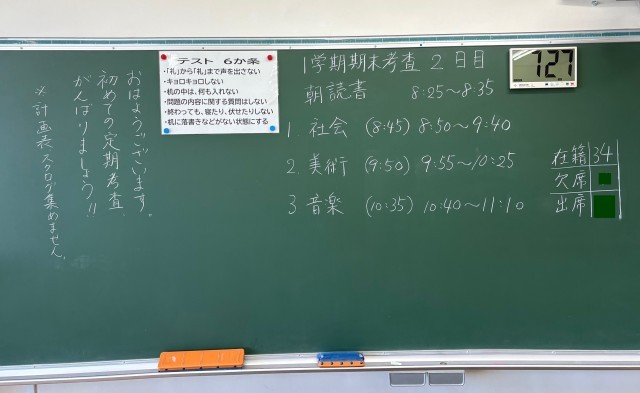 おはようございます。
初めての定期考査、
がんばりましょう!!
※計画表、スクログ集めません。
テスト 6か条
・「礼」から「礼」まで声を出さない
・キョロキョロしない
・机の中は、何も入れない
・問題の内容に関する質問はしない
・終わっても、寝たり、伏せたりしない
・机に落書きなどがない状態にする
1学期期末考査 2日目
朝読書 8:25～8:35
1. 社会 (8:45) 8:50～9:40
2. 美術 (9:50) 9:55～10:25
3 音楽 (10:35) 10:40～11:10
7:27
在籍 34
欠席
出席